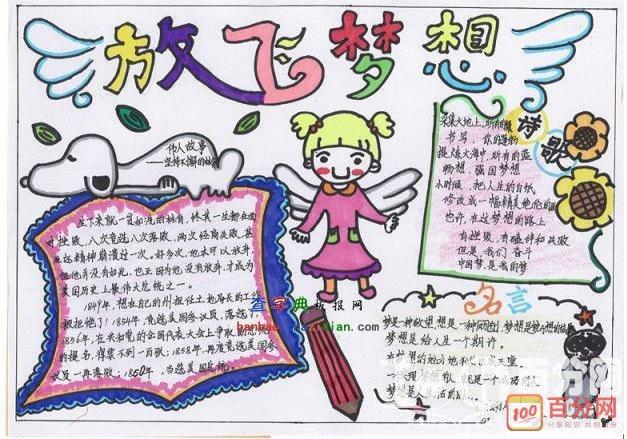 放飞梦想
伟人故事
——坚持不懈的林肯
诗歌
生下来就一贫如洗的林肯,终其一生都在面
对挫败,八次竞选八次落败,两次经商失败,甚
至还精神崩溃过一次。好多次,他本可以放弃
但他并没有如此,也正因为他没有放弃,才成为
美国历史上最伟大总统之一。
1849年,想在自己的州担任土地局长的工作
被拒绝了!1854年,竞选美国参议员,落选了!
1856年,在共和党的全国代表大会上争取副总统
的提名,得票不到一百张;1858年,再度竞选美国参
议员一再落败;1860年,当选美国总统。
采集大地上,所有的绿
书写,你的蓬勃
提炼大海中,所有的蓝
畅想,强国梦想
小时候,把人生的白纸
修改成一幅精美绝伦的画
也许,在这梦想的路上
有挫败,有磕绊和失败
但是,我们奋斗
中国梦,是我的梦
查字典板报网
banbao.chazidian.com
名言
梦是一种欲望,想是一种行动,梦想是梦与想的结晶
梦想是给人生一个期许。
梦想是人生
100 百分网
分享知识 共创百分